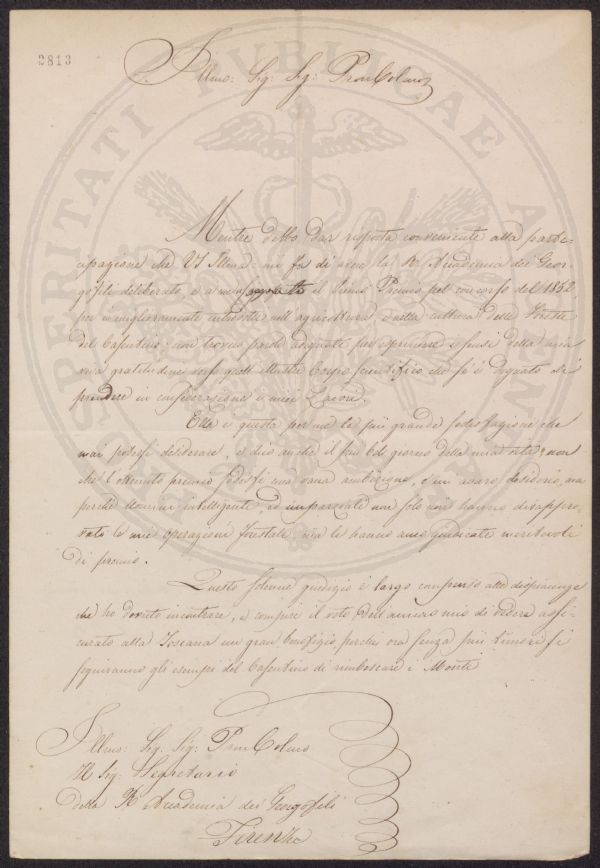 2813
Illmo: Sig: Sig: Pron Colmo
PROSPERITATI PUBLICAE AUGENDAE
Mentre debbo dar risposta conveniente alla parte-
cipazione che VS Illma: mi fa di avere la R Accademia dei Geor-
gofili deliberato, e a me il Premio pel concorso del 1852
per i miglioramenti introdotti nell agricoltura, e nella cultura delle Foreste
del Casentino: non trovo parole adequate per esprimere i sensi della mia
viva gratitudine verso quell illustre Corpo scientifico che si è degnato di
prendere in considerazione i miei Lavori.
Ella è questa per me la più grande sodisfazione che
mai potessi desiderare, e dirò anche il più bel giorno della mia vita; non
che l'ottenuto premio sodisfi una vana ambizione, o un avaro desiderio, ma
perchè Uomini intelligenti, ed imparziali non solo non hanno disappro-
vato le mie operazioni forestali, ma le hanno anzi giudicate meritevoli
di premio.
Questo solenne giudizio è largo compenso alle dispiacenze
che ho dovuto incontrare, e compie il voto dell'animo mio di vedere assi-
curato alla Toscana un gran benefizio, perchè ora senza più timori si
seguiranno gli esempi del Casentino di rimboscare i Monti
Illmo: Sig: Sig: Pron Colmo
Il Sig: Segretario
della R Accademia dei Georgofili
Firenze